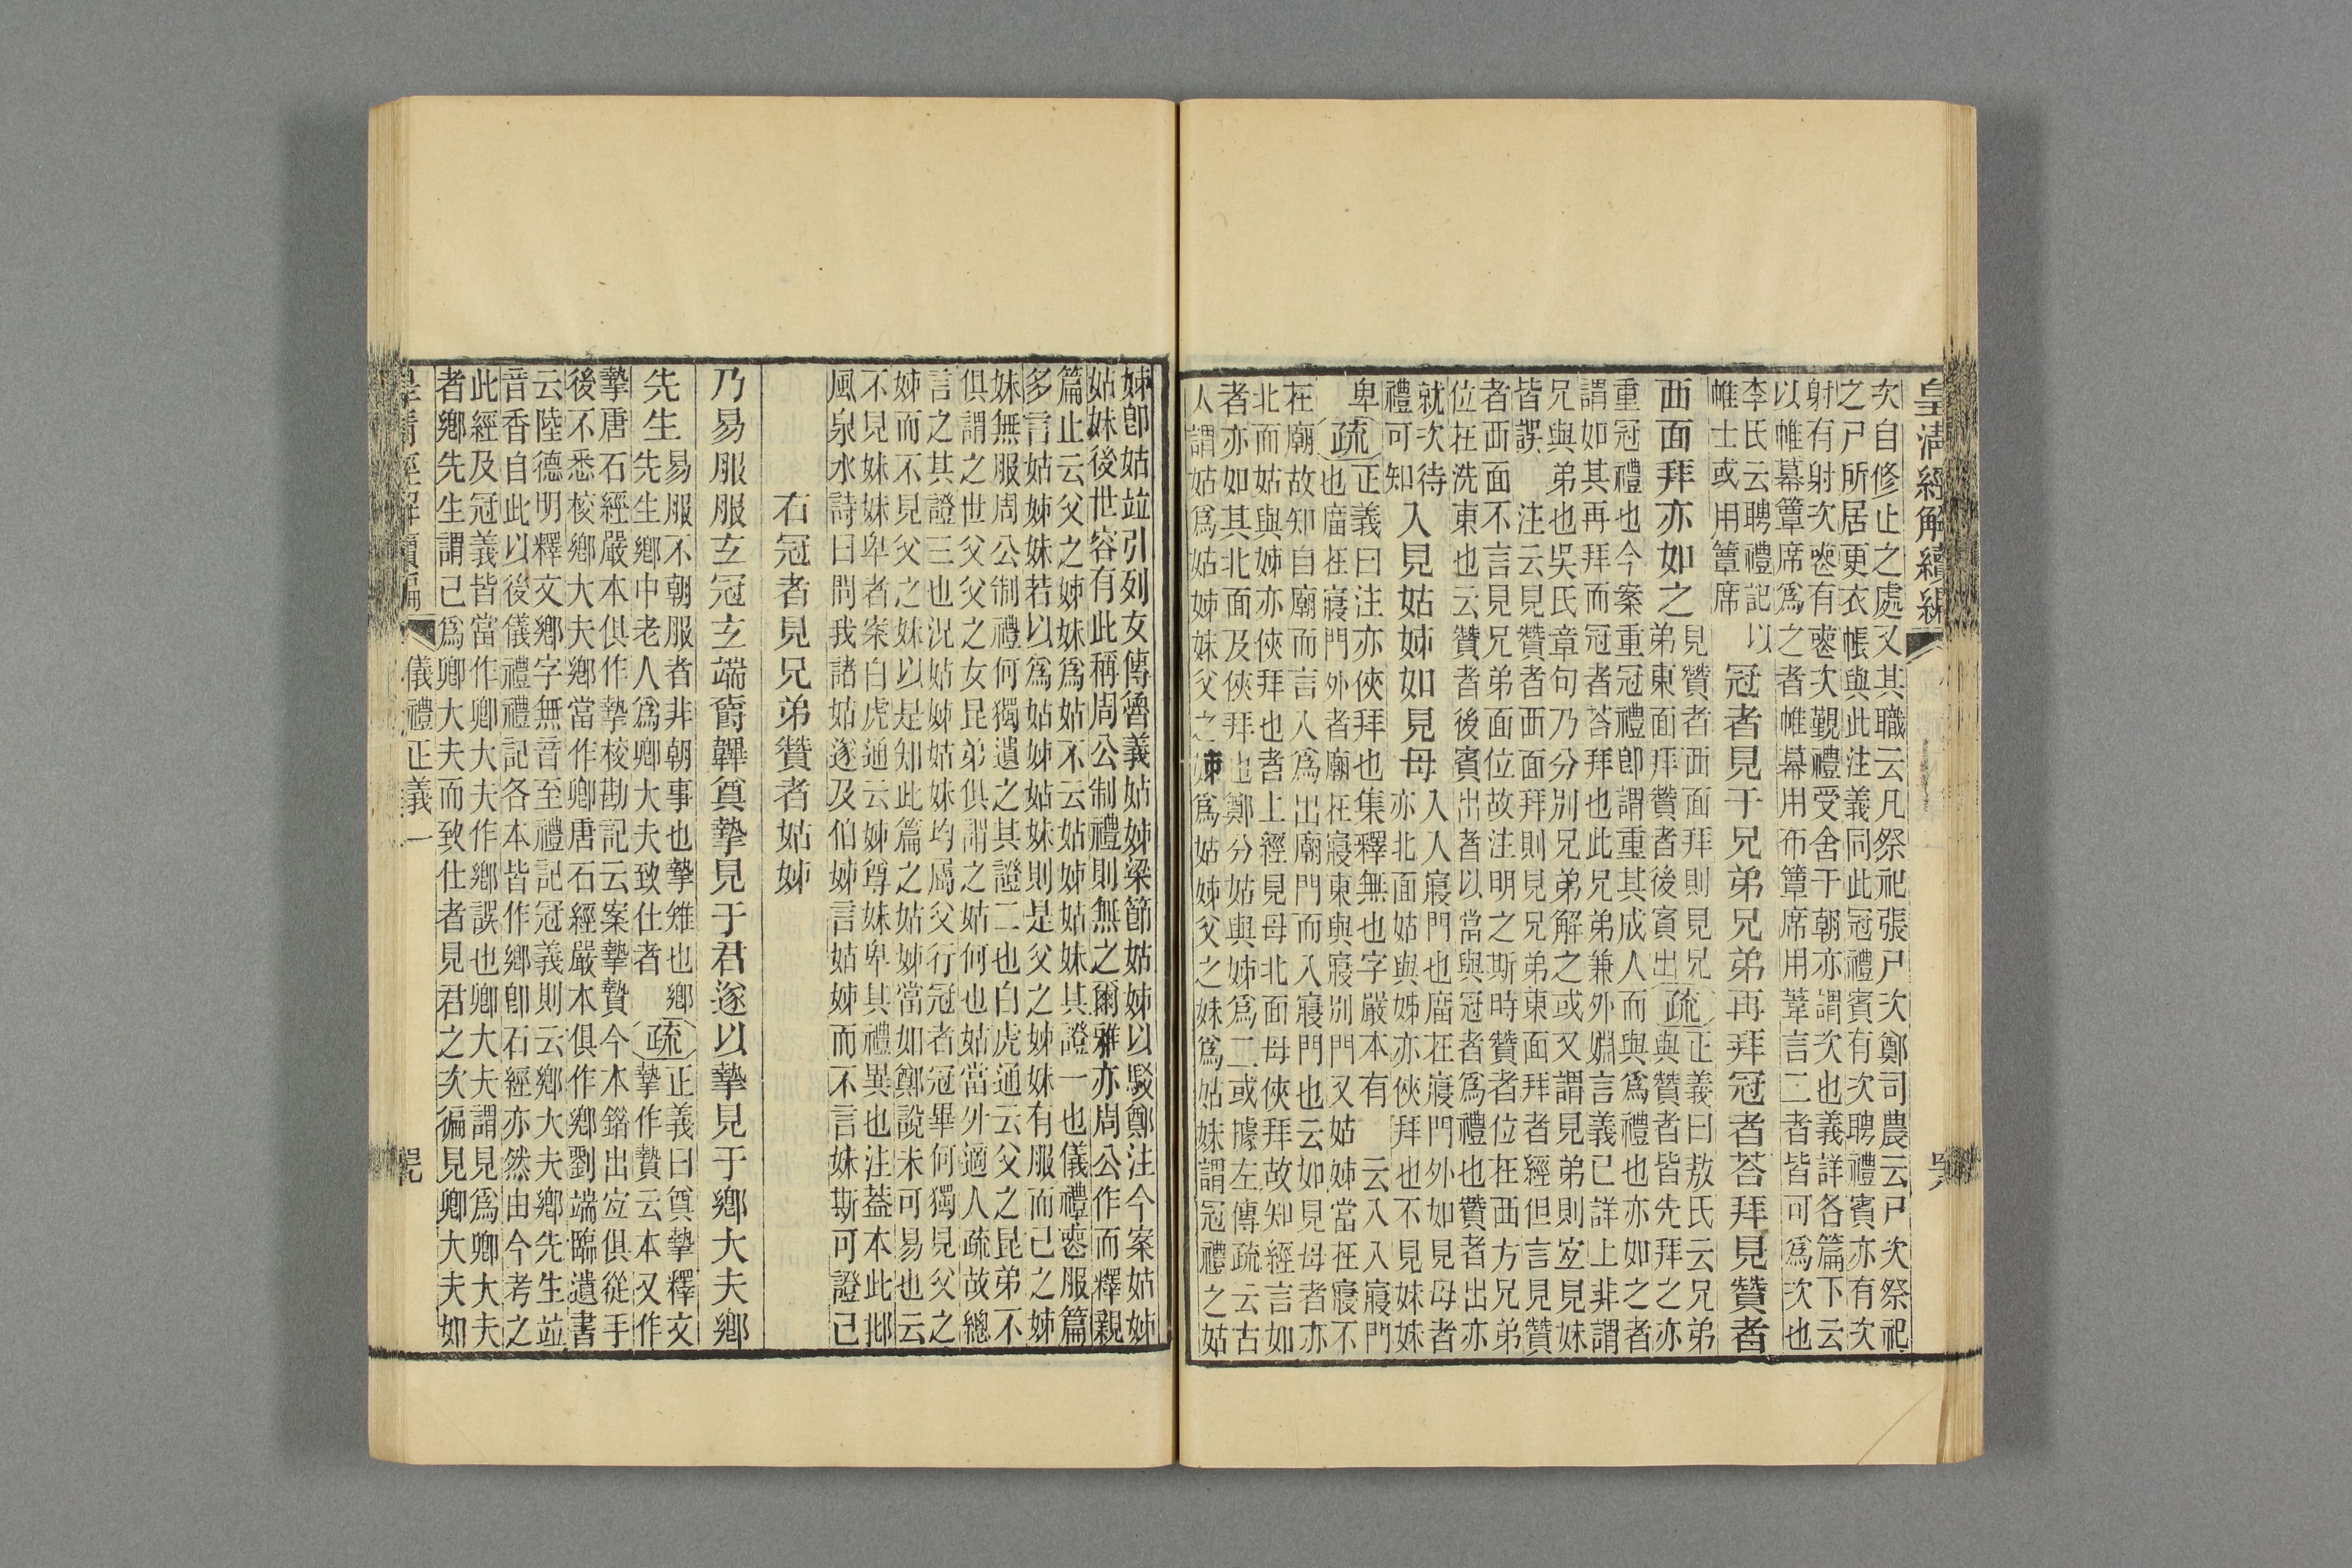 皇清經解續編
次自修止之處又其職云凡祭祀張尸次鄭司農云尸次祭祀
之尸所居更衣帳與此注義同此冠禮賓有次聘禮賓亦有次
射有射次喪有喪次覲禮受舍于朝亦謂次也義詳各篇下云
以帷幕簟席爲之者帷幕用布簟席用葦言二者皆可爲次也
李氏云聘禮記以
帷士或用簟席
冠者見于兄弟兄弟再拜冠者荅拜見贊者
西面拜亦如之
見贊者西面拜則見兄
弟東面拜贊者後賓出
疏
正義曰敖氏云兄弟
與贊者皆先拜之亦
重冠禮也今案重冠禮卽謂重其成人而與爲禮也亦如之者
謂如其再拜而冠者荅拜也此兄弟兼外姻言義已詳上非謂
兄與弟也吳氏章句乃分別兄弟解之或又謂見弟則宐見妹
皆誤 注云見贊者西面拜則見兄弟東面拜者經但言見贊
者西面不言見兄弟面位故注明之斯時贊者位在西方兄弟
位在洗東也云贊者後賓出者以當與冠者爲禮也贊者出亦
就次待
禮可知
入見姑姊如見母
入入寢門也廟在寢門外如見母者
亦北面姑與姊亦俠拜也不見妹妹
卑
疏
正義曰注亦俠拜也集釋無也字嚴本有 云入入寢門
也廟在寢門外者廟在寢東與寢別門又姑姊當在寢不
在廟故知自廟而言入爲出廟門而入寢門也云如見母者亦
北面姑與姊亦俠拜也者上經見母北面母俠拜故知經言如
者亦如其北面及俠拜也鄭分姑與姊爲二或據左傳疏云古
人謂姑爲姑姊妹父之姊爲姑姊父之妹爲姑妹謂冠禮之姑
姊卽姑竝引列女傳魯義姑姊梁節姑姊以駁鄭注今案姑姊
姑妹後世容有此稱周公制禮則無之爾雅亦周公作而釋親
篇止云父之姊妹爲姑不云姑姊姑妹其證一也儀禮喪服篇
多言姑姊妹若以爲姑姊姑妹則是父之姊妹有服而已之姊
妹無服周公制禮何獨遺之其證二也白虎通云父之昆弟不
俱謂之世父父之女昆弟俱謂之姑何也姑當外適人疏故總
言之其證三也況姑姊姑妹均屬父行冠者冠畢何獨見父之
姊而不見父之妹以是知此篇之姑姊當如鄭說未可易也云
不見妹妹卑者案白虎通云姊尊妹卑其禮異也注葢本此邶
風泉水詩曰問我諸姑遂及伯姊言姑姊而不言妹斯可證已
右冠者見兄弟贊者姑姊
乃易服服玄冠玄端爵韠奠摯見于君遂以摯見于鄕大夫鄕
先生
易服不朝服者非朝事也摯雉也鄕
先生鄕中老人爲卿大夫致仕者
疏
正義曰奠摯釋文
摯作贄云本又作
摯唐石經嚴本俱作摯校勘記云案摯贄今本錯出宐俱從手
後不悉校鄕大夫鄕當作卿唐石經嚴本俱作鄕劉端臨遺書
云陸德明釋文鄕字無音至禮記冠義則云鄕大夫鄕先生竝
音香自此以後儀禮禮記各本皆作鄕卽石經亦然由今考之
此經及冠義皆當作卿大夫作鄕誤也卿大夫謂見爲卿大夫
者鄕先生謂已爲卿大夫而致仕者見君之次徧見卿大夫如
皇清經解續編 儀禮正義一